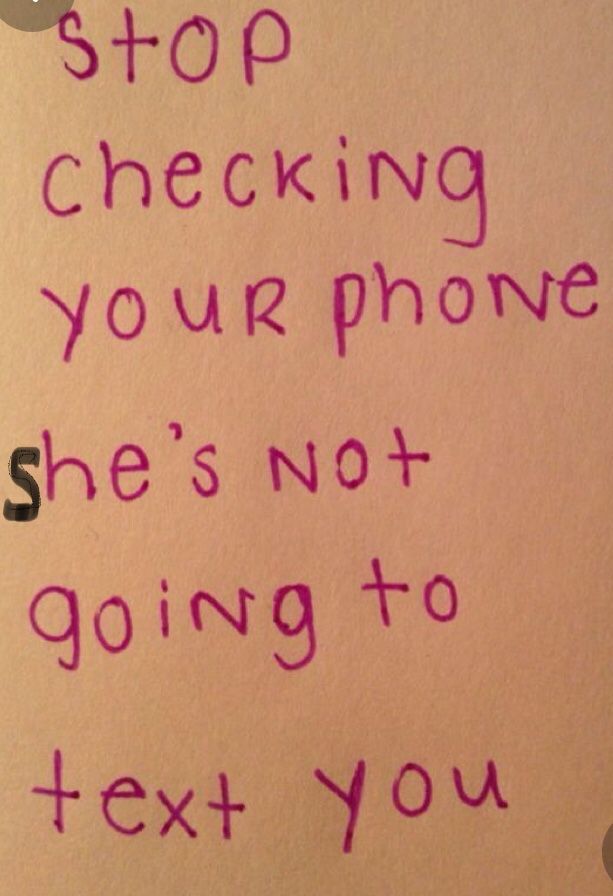 stop
checking
your phone
She's Not
going to
text you